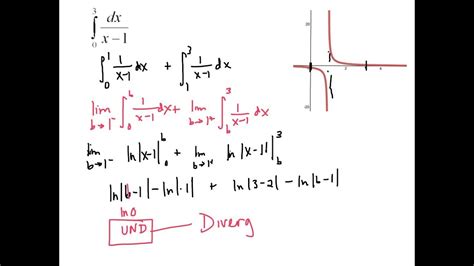 ∫₀³ dx/(x-1)
∫₀¹ 1/(x-1) dx + ∫₁³ 1/(x-1) dx
lim b→1⁻ ∫₀ᵇ 1/(x-1) dx + lim b→1⁺ ∫_b³ 1/(x-1) dx
lim b→1⁻ ln|x-1| |₀ᵇ + lim b→1⁺ ln|x-1| |_b³
ln|b-1| - ln|-1| + ln|3-2| - ln|b-1|
ln 0
UND — Diverg